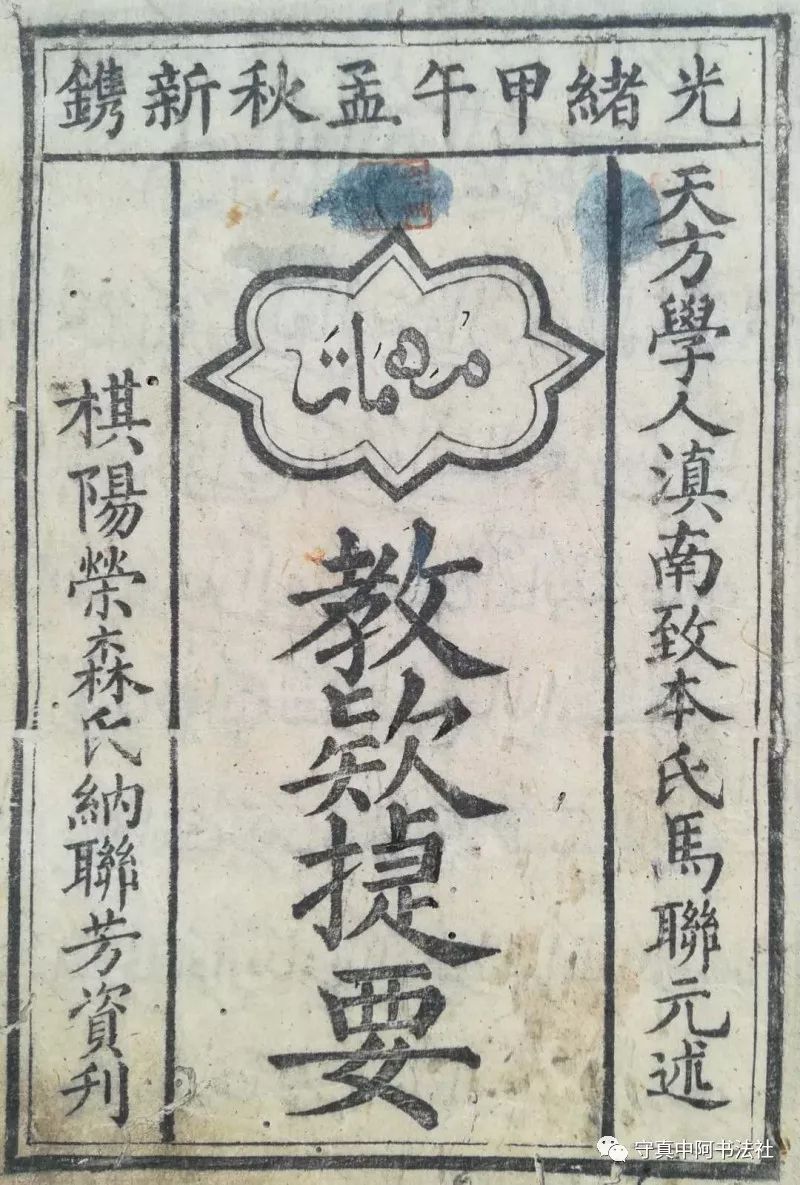 光緒甲午孟秋新鐫
天方學人滇南致本氏馬聯元述
مهمات
教欵捷要
棋陽榮森氏納聯芳資刊
守真中阿书法社